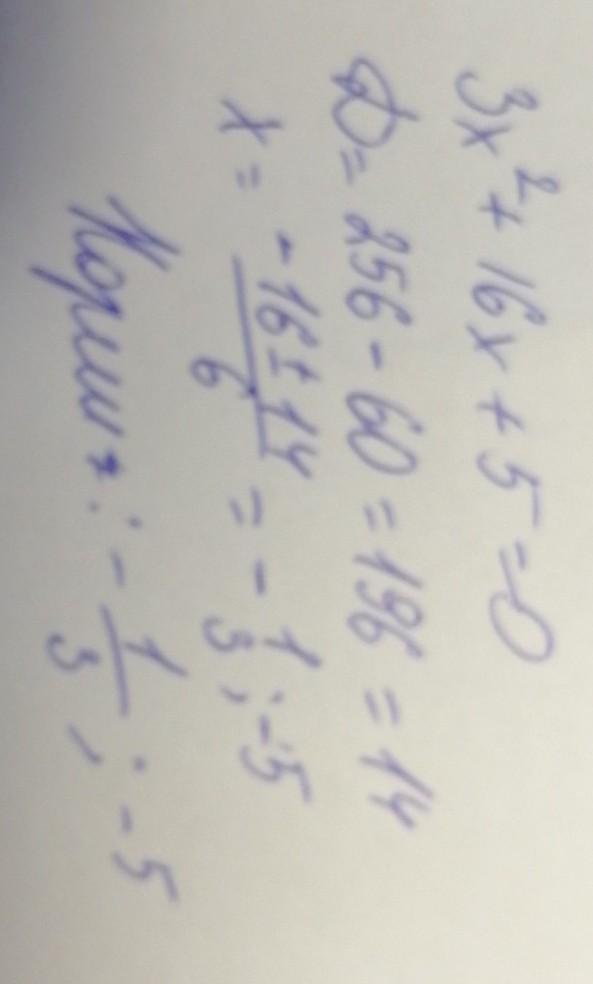 3x² + 16x + 5 = 0
D = 256 - 60 = 196 = 14
x = (-16 ± 14)/6 = -1/3 ; -5
Корни : -1/3 ; -5